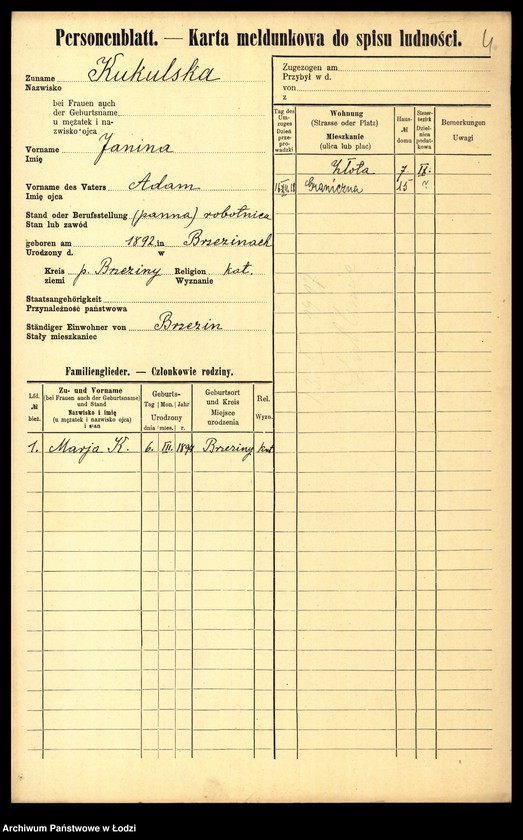 Personenblatt. — Karta meldunkowa do spisu ludności.
4.
Zuname Kukulska
Nazwisko
bei Frauen auch
der Geburtsname
u mężatek i na-
zwisko ojca
Vorname Janina
Imię
Vorname des Vaters Adam
Imię ojca
Stand oder Berufsstellung (panna) robotnica
Stan lub zawód
geboren am 1892 in Brzezinach
Urodzony d. w
Kreis p. Brzeziny Religion kat.
ziemi Wyznanie
Staatsangehörigkeit
Przynależność państwowa
Ständiger Einwohner von Brzezin
Stały mieszkaniec
Familienglieder. — Członkowie rodziny.
Lfd. № bież.
Zu- und Vorname
(bei Frauen auch der Geburtsname)
und Stand
Nazwisko i imię
(u mężatek i nazwisko ojca)
i stan
Geburts-
Tag Mon. Jahr
Urodzony
dnia mies. r.
Geburtsort
und Kreis
Miejsce
urodzenia
Rel.
Wyzn.
1. Marja K. 6. III. Brzeziny kat
Zugezogen am
Przybył w d.
von
z
Tag des
Um-
zuges
Dzień
prze-
prowadzki
Wohnung
(Strasse oder Platz)
Mieszkanie
(ulica lub plac)
Haus-
№
domu
Steuer-
bezirk
Dziel-
nica
podat-
kowa
Bemerkungen
Uwagi
Złota 7. II.
Graniczna 15 "
Archiwum Państwowe w Łodzi